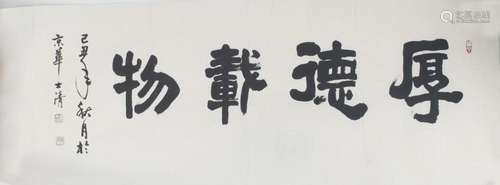 厚德載物
己丑年秋月於
京華士清